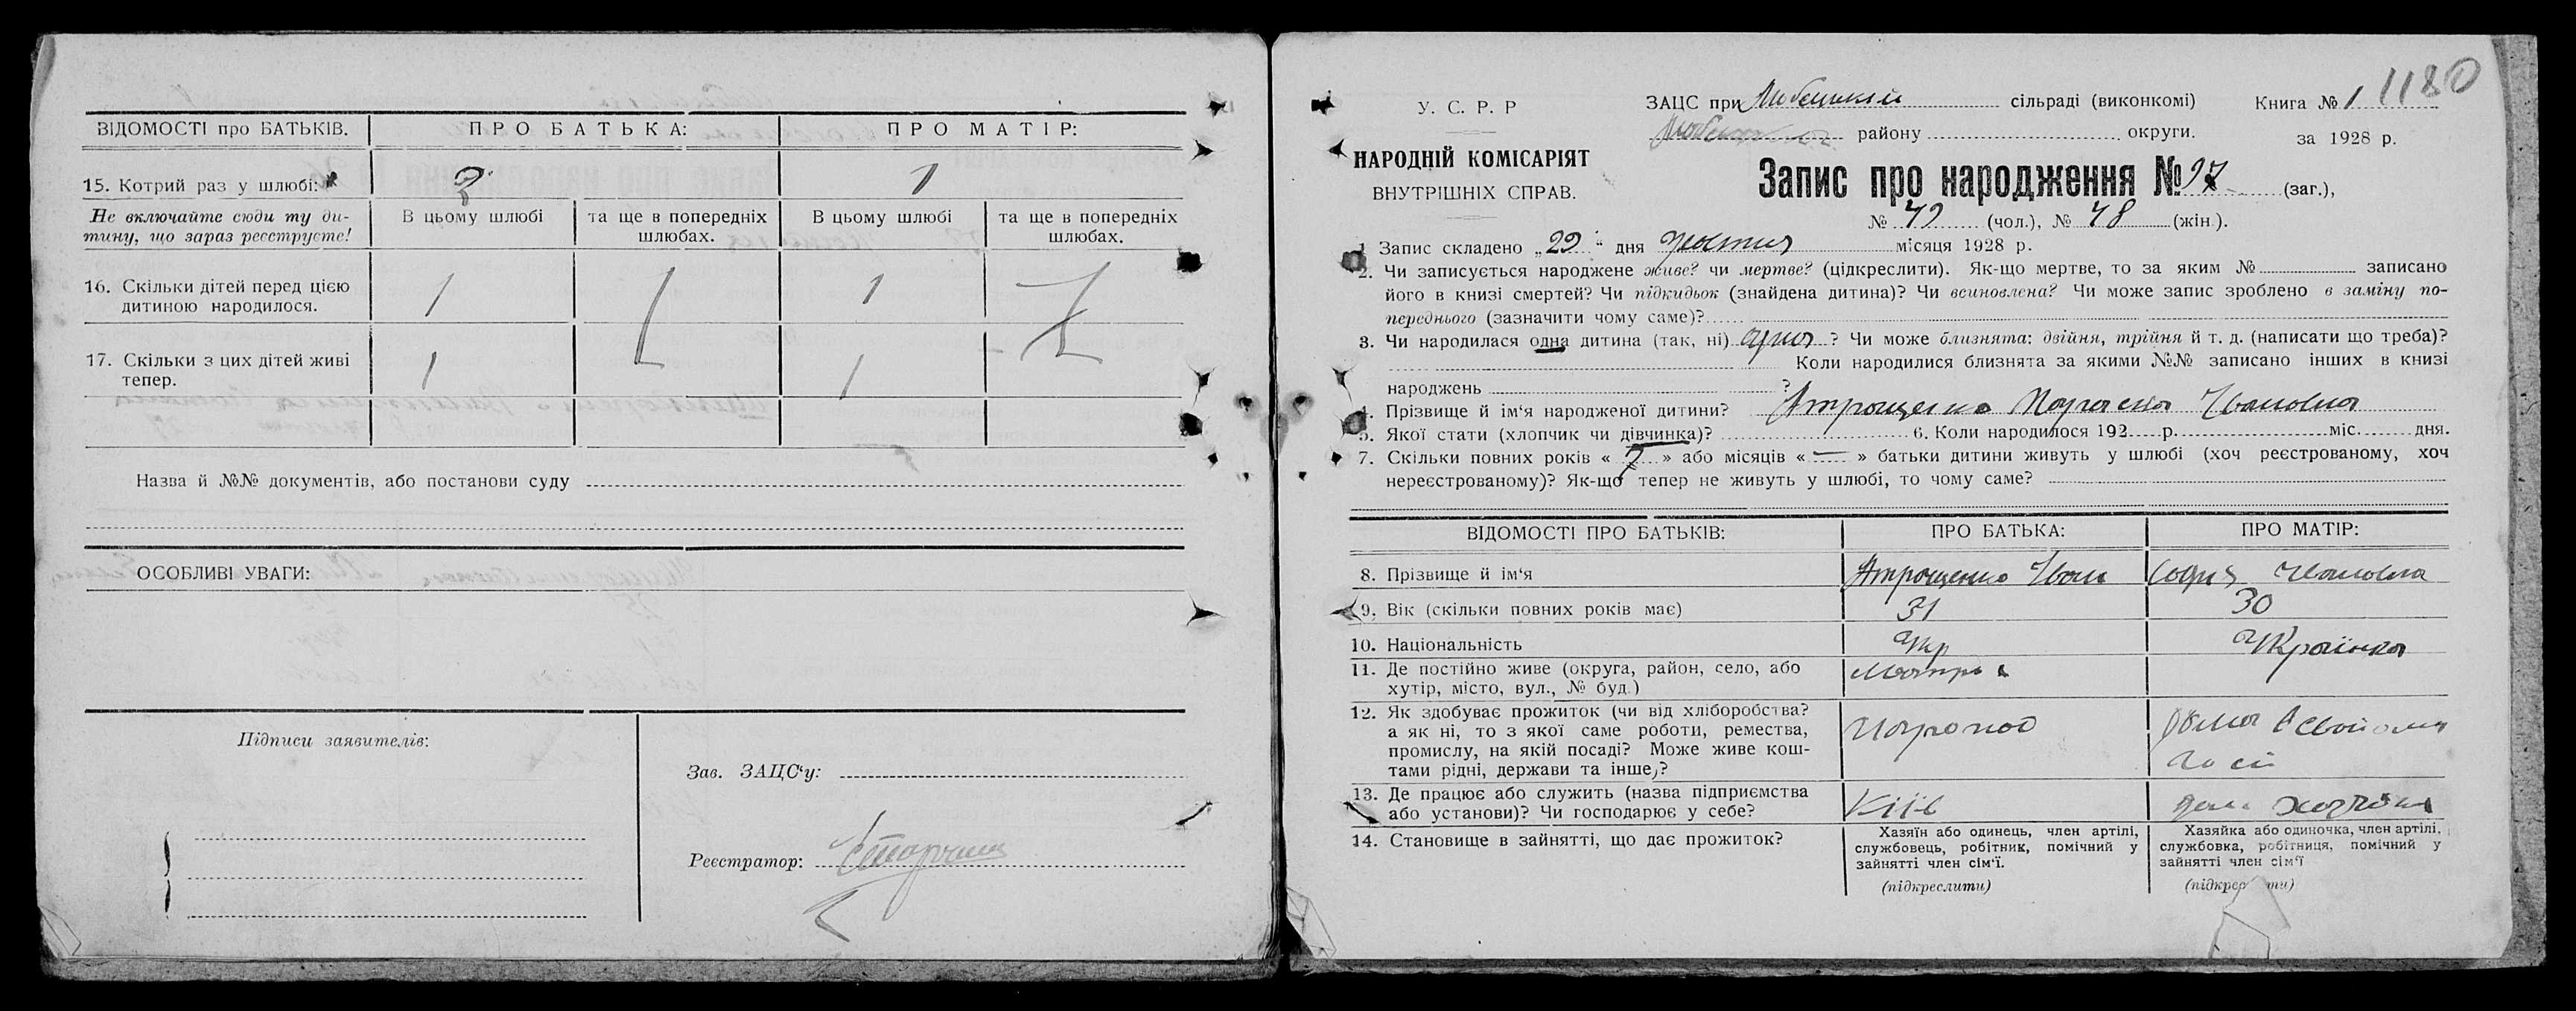 ВІДОМОСТІ про БАТЬКІВ. ПРО БАТЬКА: ПРО МАТІР:
15. Котрий раз у шлюбі: 2 1
Не включайте сюди ту ди-
тину, що зараз реєструєте!
В цьому шлюбі
та ще в попередніх
шлюбах.
В цьому шлюбі
та ще в попередніх
шлюбах.
16. Скільки дітей перед цією
дитиною народилося.
1 1
17. Скільки з цих дітей живі
тепер.
1 1
Назва й №№ документів, або постанови суду
ОСОБЛИВІ УВАГИ:
Підписи заявителів:
Зав. ЗАЦС‘у:
Реєстратор:
1180
У. С. Р. Р
НАРОДНІЙ КОМІСАРІЯТ
ВНУТРІШНІХ СПРАВ.
ЗАЦС при Любецький сільраді (виконкомі)
району округи.
Книга № 1
за 1928 р.
Запис про народження № 97 (заг.),
№ 49 (чол.), № 48 (жін.).
1 Запис складено „29“ дня жовтня місяця 1928 р.
2. Чи записується народжене живе? чи мертве? (цідкреслити). Як-що мертве, то за яким № записано
його в книзі смертей? Чи підкидьок (знайдена дитина)? Чи всиновлена? Чи може запис зроблено в заміну по-
переднього (зазначити чому саме)?
3. Чи народилася одна дитина (так, ні) одна ? Чи може близнята: двійня, трійня й т. д. (написати що треба)?
Коли народилися близнята за якими №№ записано інших в книзі
народжень ?
4. Прізвище й ім‘я народженої дитини? Атрощенко Параска Івановна
5. Якої стати (хлопчик чи дівчинка)? 6. Коли народилося 192 р. міс. дня.
7. Скільки повних років « 7 » або місяців « — » батьки дитини живуть у шлюбі (хоч реєстрованому, хоч
нереєстрованому)? Як-що тепер не живуть у шлюбі, то чому саме?
ВІДОМОСТІ ПРО БАТЬКІВ: ПРО БАТЬКА: ПРО МАТІР:
8. Прізвище й ім‘я Атрощенко Іван Софія Івановна
9. Вік (скільки повних років має) 31 30
10. Національність Укр Українка
11. Де постійно живе (округа, район, село, або
хутір, місто, вул., № буд.)
12. Як здобуває прожиток (чи від хліборобства?
а як ні, то з якої саме роботи, ремества,
промислу, на якій посаді? Може живе кош-
тами рідні, держави та інше)?
13. Де працює або служить (назва підприємства
або установи)? Чи господарює у себе?
Київ
14. Становище в зайнятті, що дає прожиток?
Хазяїн або одинець, член артілі,
службовець, робітник, помічний у
зайнятті член сім‘ї.
(підкреслити)
Хазяйка або одиночка, член артілі,
службовка, робітниця, помічний у
зайнятті член сім‘ї